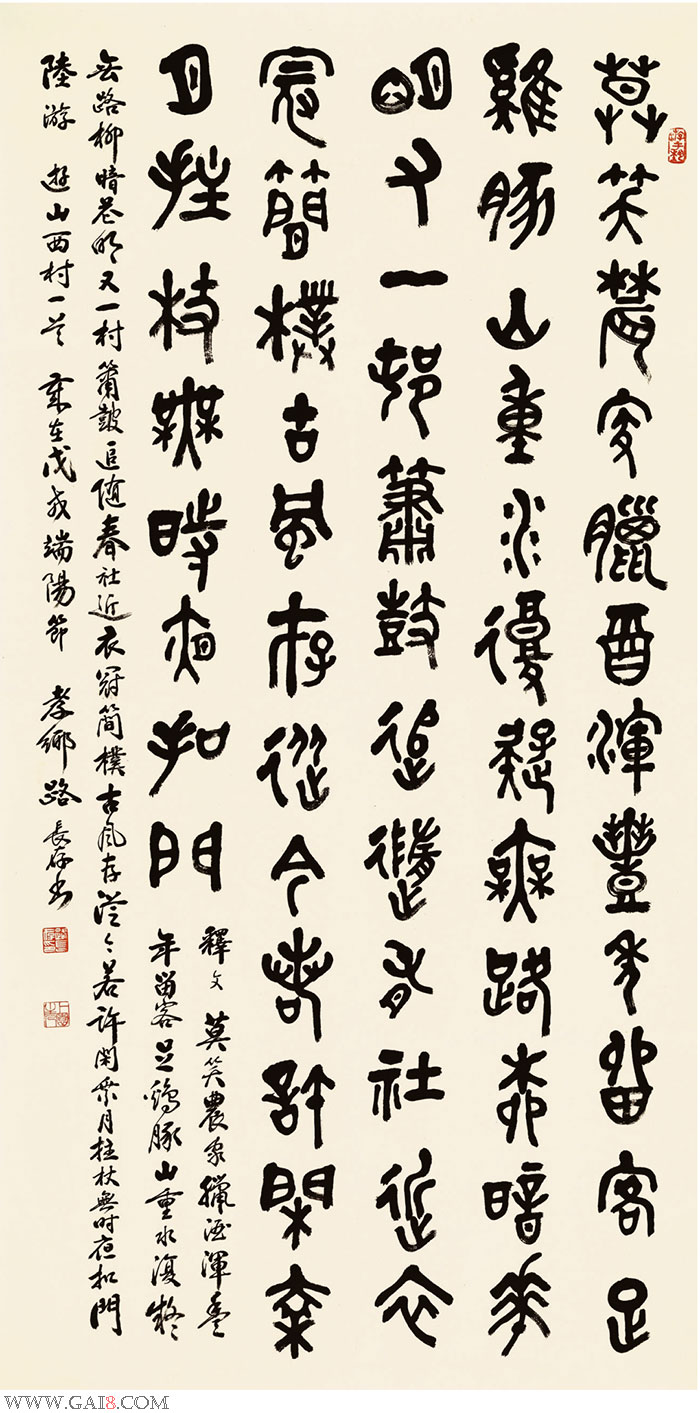 莫笑農家臘酉渾豐年留客足
雞豚山重水復疑無路柳暗華
明又一邨蕭鼓追隨春社近衣
冠簡樸古風存從今若許閑乘
月拄杖無時夜扣門
釋文 莫笑農家臘酒渾豐
年留客足鷄豚山重水復疑
無路柳暗花明又一村簫鼓追隨春社近衣冠簡樸古風存從今若許閑乘月拄杖無时夜扣門
陸游 遊山西村一首 歲在戊戌端陽節 孝鄉路長存書
WWW.GAI8.COM